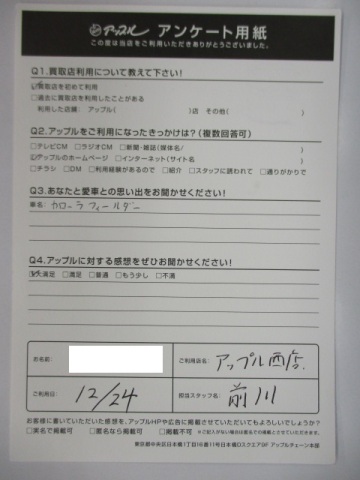 アップル アンケート用紙
この度は当店をご利用いただきありがとうございました。
Q1.買取店利用について教えて下さい!
☑買取店を初めて利用
□過去に買取店を利用したことがある
利用した店舗: アップル( )店 その他( )
Q2.アップルをご利用になったきっかけは?(複数回答可)
□テレビCM □ラジオCM □新聞・雑誌(媒体名/ )
☑アップルのホームページ □インターネット(サイト名 )
□チラシ □DM □利用経験があるので □紹介 □スタッフに誘われて □通りがかりで
Q3.あなたと愛車との思い出をお聞かせください!
車名: カローラフィールダー
Q4.アップルに対する感想をぜひお聞かせください!
☑大満足 □満足 □普通 □もう少し □不満
お名前: ご利用店名: アップル西店.
ご利用日: 12/24 担当スタッフ名: 前川
お客様に書いていただいた感想を、アップルHPや広告に掲載させていただいてもよろしいでしょうか?
□実名で掲載可 □匿名なら掲載可 □掲載不可 ※ご記入がない場合は匿名での掲載とさせていただきます。
東京都中央区日本橋1丁目16番11号日本橋Dスクエア9F アップルチェーン本部